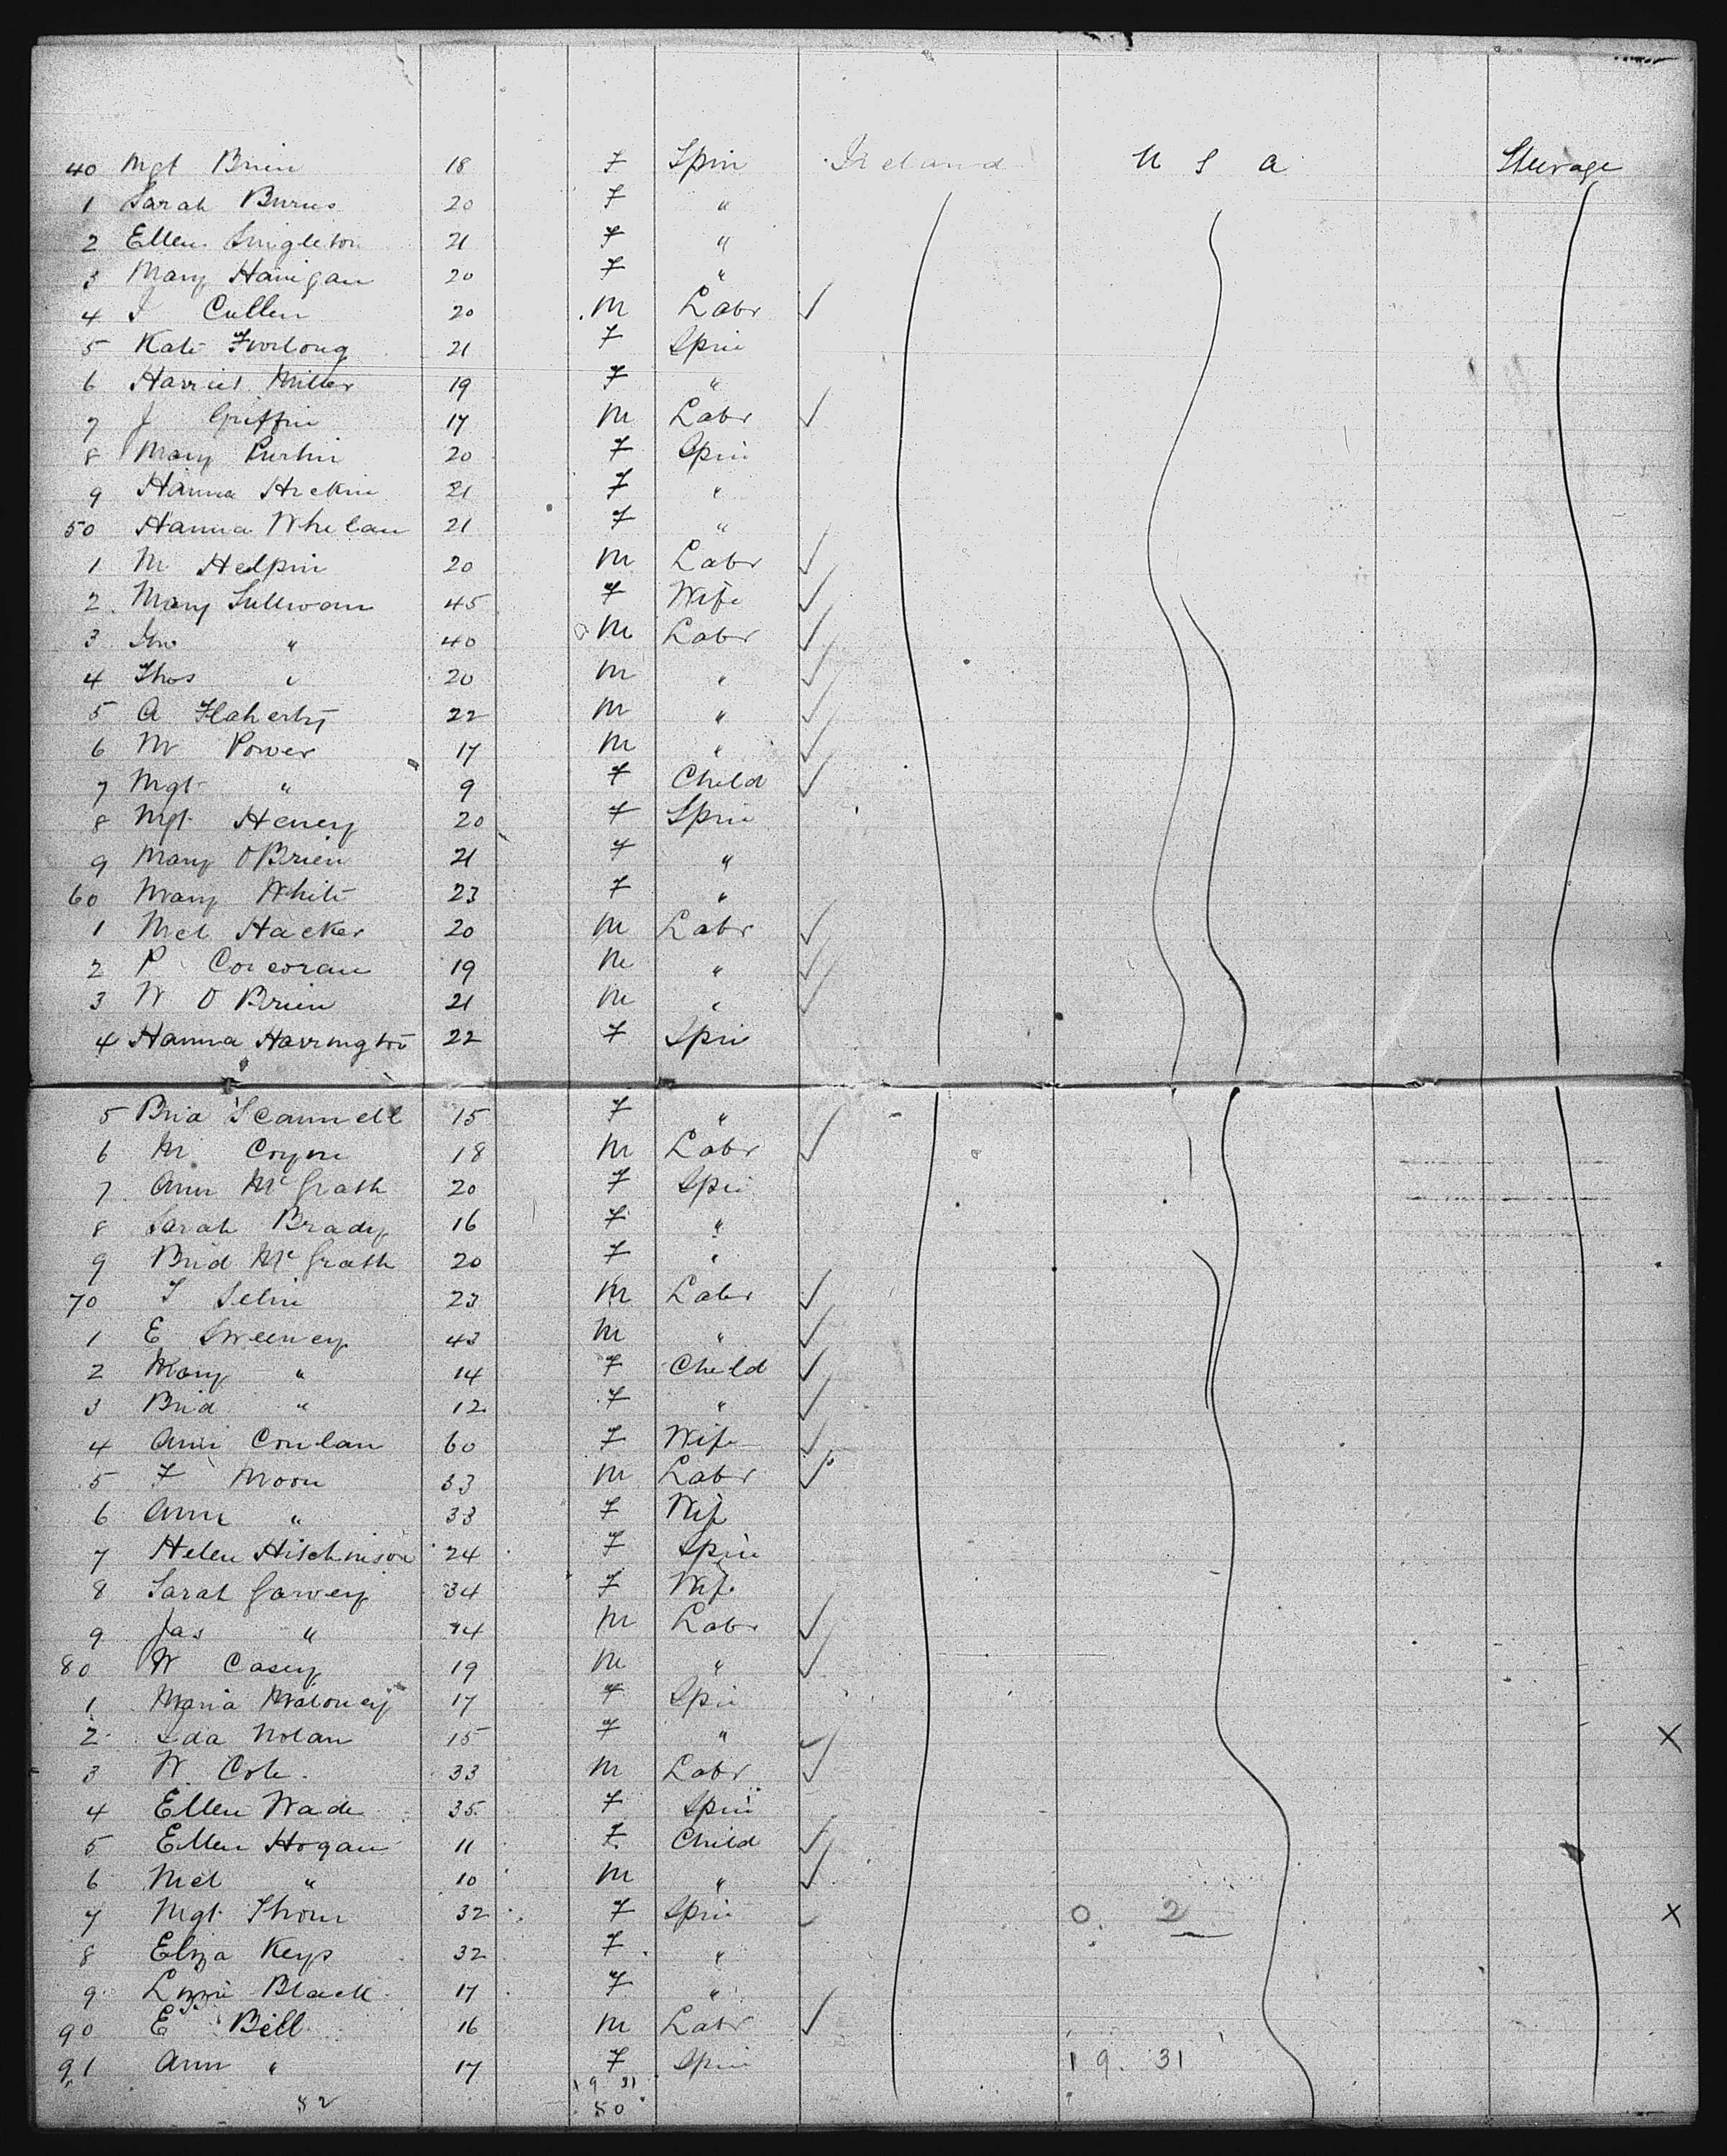 40 Mgt Brien 18 F Spin Ireland U S A Steerage
1 Sarah Burns 20 F "
2 Ellen Singleton 21 F "
3 Mary Hanigan 20 F "
4 J Cullen 20 M Labr ✓
5 Kate Furlong 21 F Spin
6 Harriet Miller 19 F "
7 J Griffin 17 M Labr ✓
8 Mary 20 F Spin
9 Hanna Hickin 21 F "
50 Hanna Whelan 21 F "
1 M Helpin 20 M Labr ✓
2 Mary Sullivan 45 F Wife ✓
3 Jno " 40 M Labr ✓
4 Thos " 20 M " ✓
5 A Flaherty 22 M " ✓
6 M Power 17 M " ✓
7 Mgt " 9 F Child ✓
8 Mgt Heney 20 F Spin
9 Mary OBrien 21 F "
60 Mary White 23 F "
1 Mcl Hacker 20 M Labr ✓
2 P Corcoran 19 M " ✓
3 W O Brien 21 M " ✓
4 Hanna Harrington 22 F Spin
5 Brid Scannell 15 F " ✓
6 M Coyne 18 M Labr ✓
7 Ann McGrath 20 F Spin
8 Sarah Brady 16 F "
9 Brid McGrath 20 F "
70 23 M Labr ✓
1 E Sweeney 43 M " ✓
2 Mary " 14 F Child ✓
3 Brid " 12 F " ✓
4 Ann Conlan 60 F Wife ✓
5 F Moon 33 M Labr ✓
6 Ann " 33 F Wife
7 Helen Hitchinson 24 F Spin
8 Sarah Garvey 34 F Wife
9 Jas " 34 M Labr ✓
80 W Casey 19 M " ✓
1 Maria Maloney 17 F Spin
2 Ida Nolan 15 F " ✓ X
3 W. Cole 33 M Labr ✓
4 Ellen Wade 35 F Spin
5 Ellen Hogan 11 F Child ✓
6 Mcl " 10 M " ✓
7 Mgt Thom 32 F Spin ✓ 0. 2 X
8 Eliza Keys 32 F "
9 Lizzie Black 17 F "
90 E Bell 16 M Labr ✓
91 Ann " 17 F Spin 19. 31
19 31
82 50